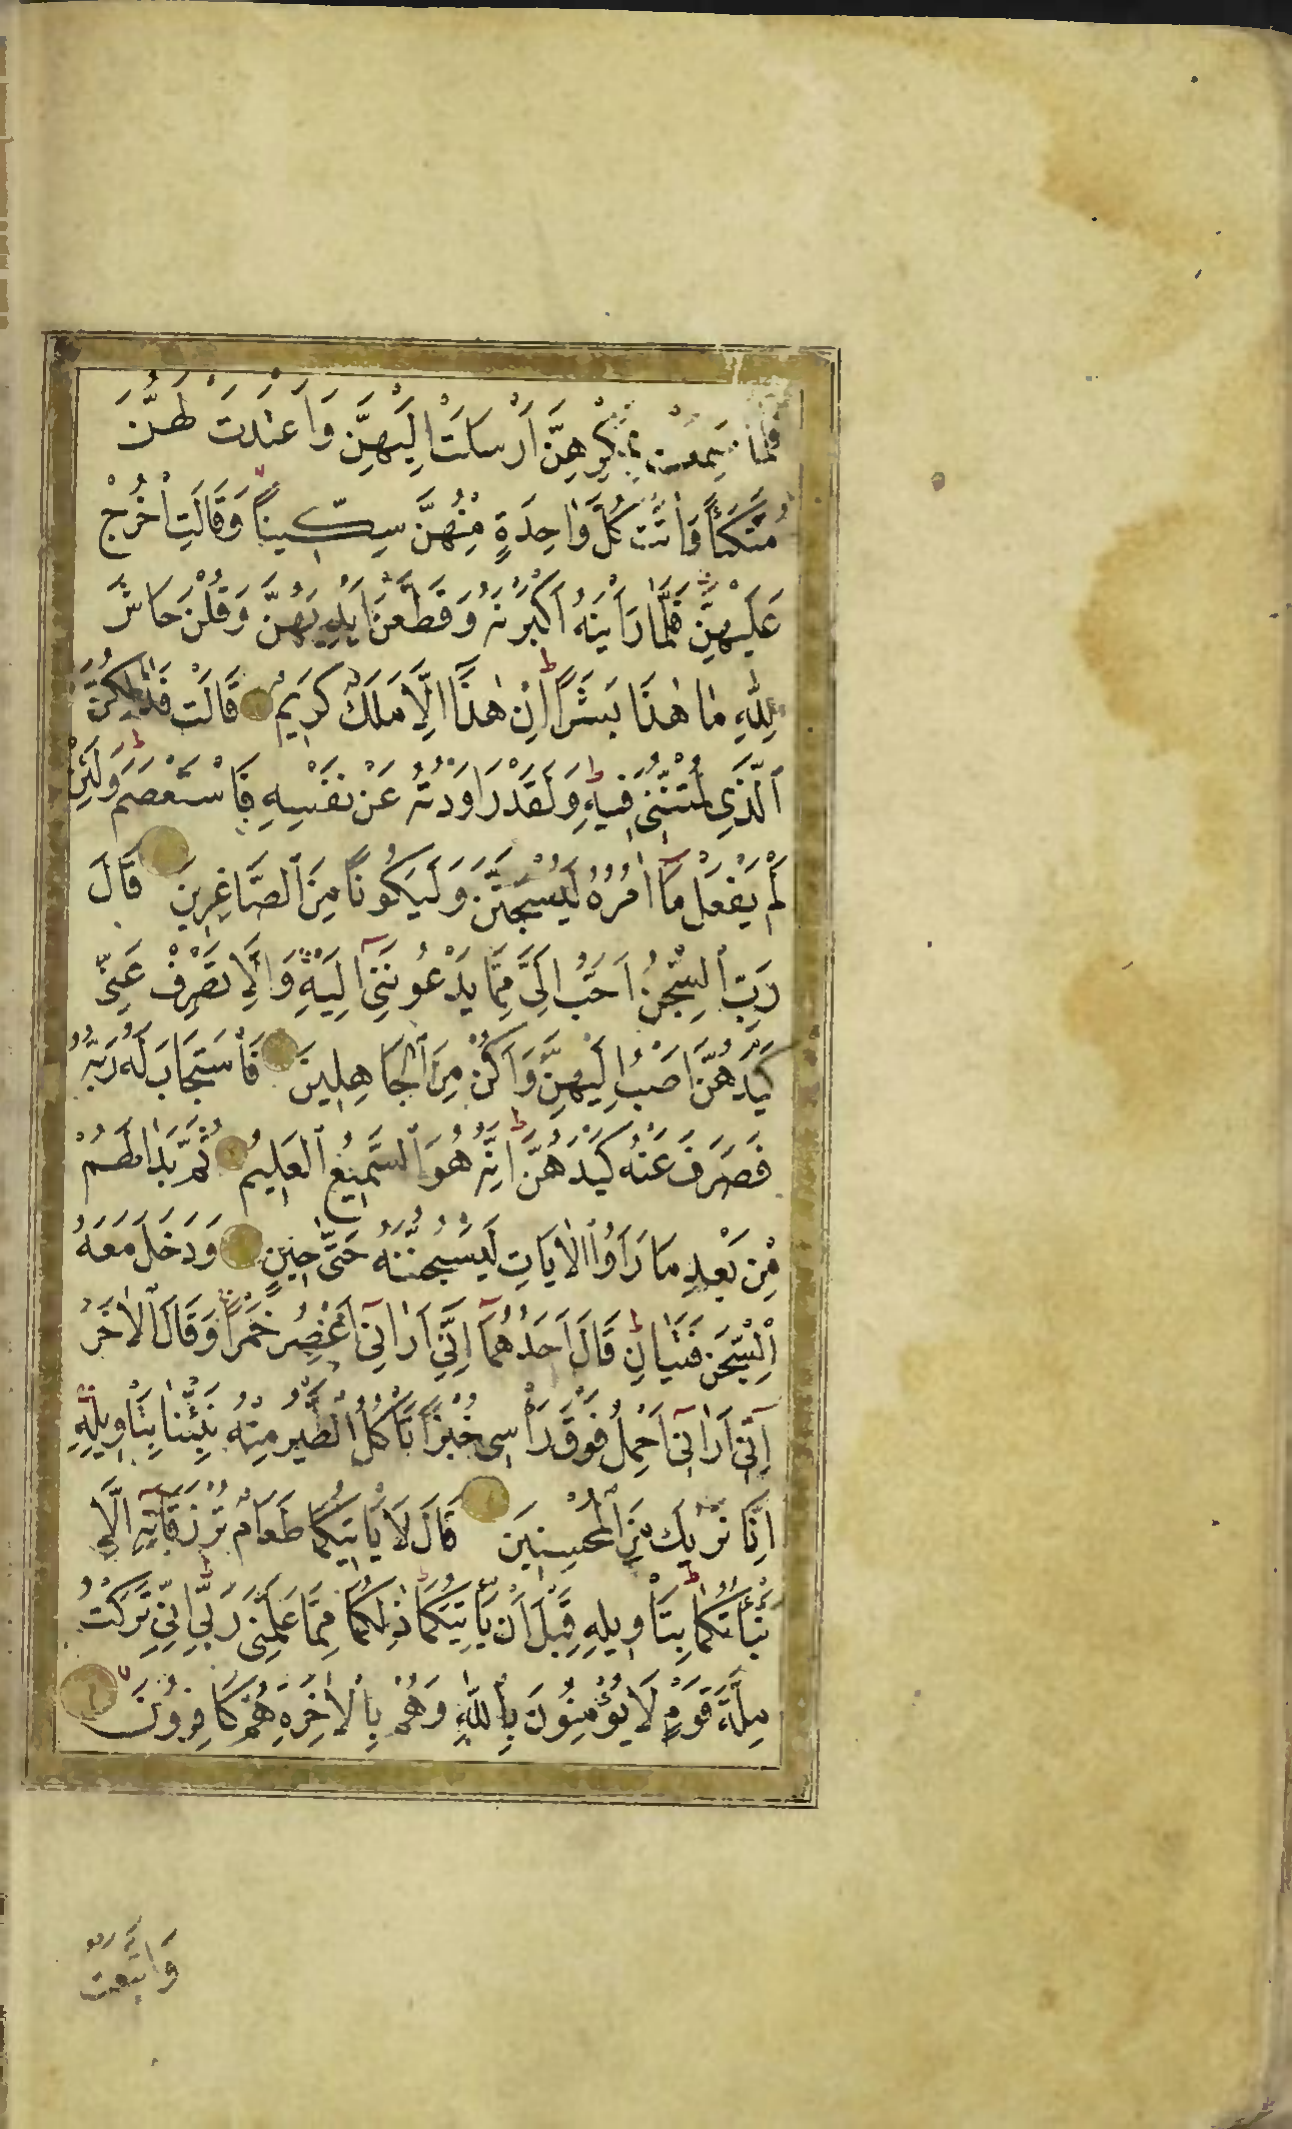 فَلَمَّا سَمِعَتْ بِمَكْرِهِنَّ اَرْسَلَتْ اِلَيْهِنَّ وَاَعْتَدَتْ لَهُنَّ
مُتَّكَـًٔا وَاٰتَتْ كُلَّ وَاحِدَةٍ مِنْهُنَّ سِكّٖينًا وَقَالَتِ اخْرُجْ
عَلَيْهِنَّ فَلَمَّا رَاَيْنَهُ اَكْبَرْنَهُ وَقَطَّعْنَ اَيْدِيَهُنَّ وَقُلْنَ حَاشَ
لِلّٰهِ مَا هٰذَا بَشَرًا اِنْ هٰذَٓا اِلَّا مَلَكٌ كَرٖيمٌ قَالَتْ فَذٰلِكُنَّ
الَّذٖي لُمْتُنَّنٖي فٖيهِ وَلَقَدْ رَاوَدْتُهُ عَنْ نَفْسِهِ فَاسْتَعْصَمَ وَلَئِنْ
لَمْ يَفْعَلْ مَٓا اٰمُرُهُ لَيُسْجَنَنَّ وَلَيَكُونًا مِنَ الصَّاغِرٖينَ قَالَ
رَبِّ السِّجْنُ اَحَبُّ اِلَيَّ مِمَّا يَدْعُونَنٖٓي اِلَيْهِ وَاِلَّا تَصْرِفْ عَنّٖي
كَيْدَهُنَّ اَصْبُ اِلَيْهِنَّ وَاَكُنْ مِنَ الْجَاهِلٖينَ فَاسْتَجَابَ لَهُ رَبُّهُ
فَصَرَفَ عَنْهُ كَيْدَهُنَّ اِنَّهُ هُوَ السَّمٖيعُ الْعَلٖيمُ ثُمَّ بَدَا لَهُمْ
مِنْ بَعْدِ مَا رَاَوُا الْاٰيَاتِ لَيَسْجُنُنَّهُ حَتّٰى حٖينٍ وَدَخَلَ مَعَهُ
السِّجْنَ فَتَيَانِ قَالَ اَحَدُهُمَٓا اِنّٖٓي اَرٰينٖٓي اَعْصِرُ خَمْرًا وَقَالَ الْاٰخَرُ
اِنّٖٓي اَرٰينٖٓي اَحْمِلُ فَوْقَ رَاْسٖي خُبْزًا تَاْكُلُ الطَّيْرُ مِنْهُ نَبِّئْنَا بِتَاْوٖيلِهِ
اِنَّا نَرٰيكَ مِنَ الْمُحْسِنٖينَ قَالَ لَا يَاْتٖيكُمَا طَعَامٌ تُرْزَقَانِهٖٓ اِلَّا
نَبَّاْتُكُمَا بِتَاْوٖيلِهِ قَبْلَ اَنْ يَاْتِيَكُمَا ذٰلِكُمَا مِمَّا عَلَّمَنٖي رَبّٖي اِنّٖي تَرَكْتُ
مِلَّةَ قَوْمٍ لَا يُؤْمِنُونَ بِاللّٰهِ وَهُمْ بِالْاٰخِرَةِ هُمْ كَافِرُونَ
وَاتَّبَعْتُ